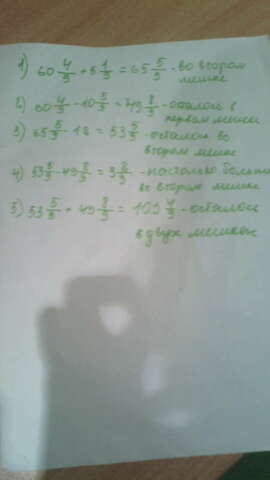 1) 60 4/9 + 5 1/9 = 65 5/9 - во втором
мешке
2) 60 4/9 - 10 5/9 = 49 8/9 - осталось в
первом мешке
3) 65 5/9 - 12 = 53 5/9 - осталось во
втором мешке
4) 53 5/9 - 49 8/9 = 3 6/9 - настолько больше
во втором мешке
5) 53 5/9 + 49 8/9 = 103 4/9 - осталось
в двух мешках